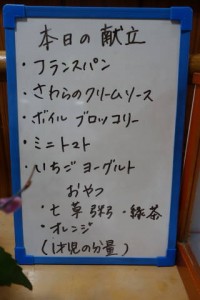 本日の献立
・フランスパン
・さわらのクリームソース
・ボイルブロッコリー
・ミニトマト
・いちごヨーグルト
おやつ
・七草粥・緑茶
・オレンジ
(1才児の分量)